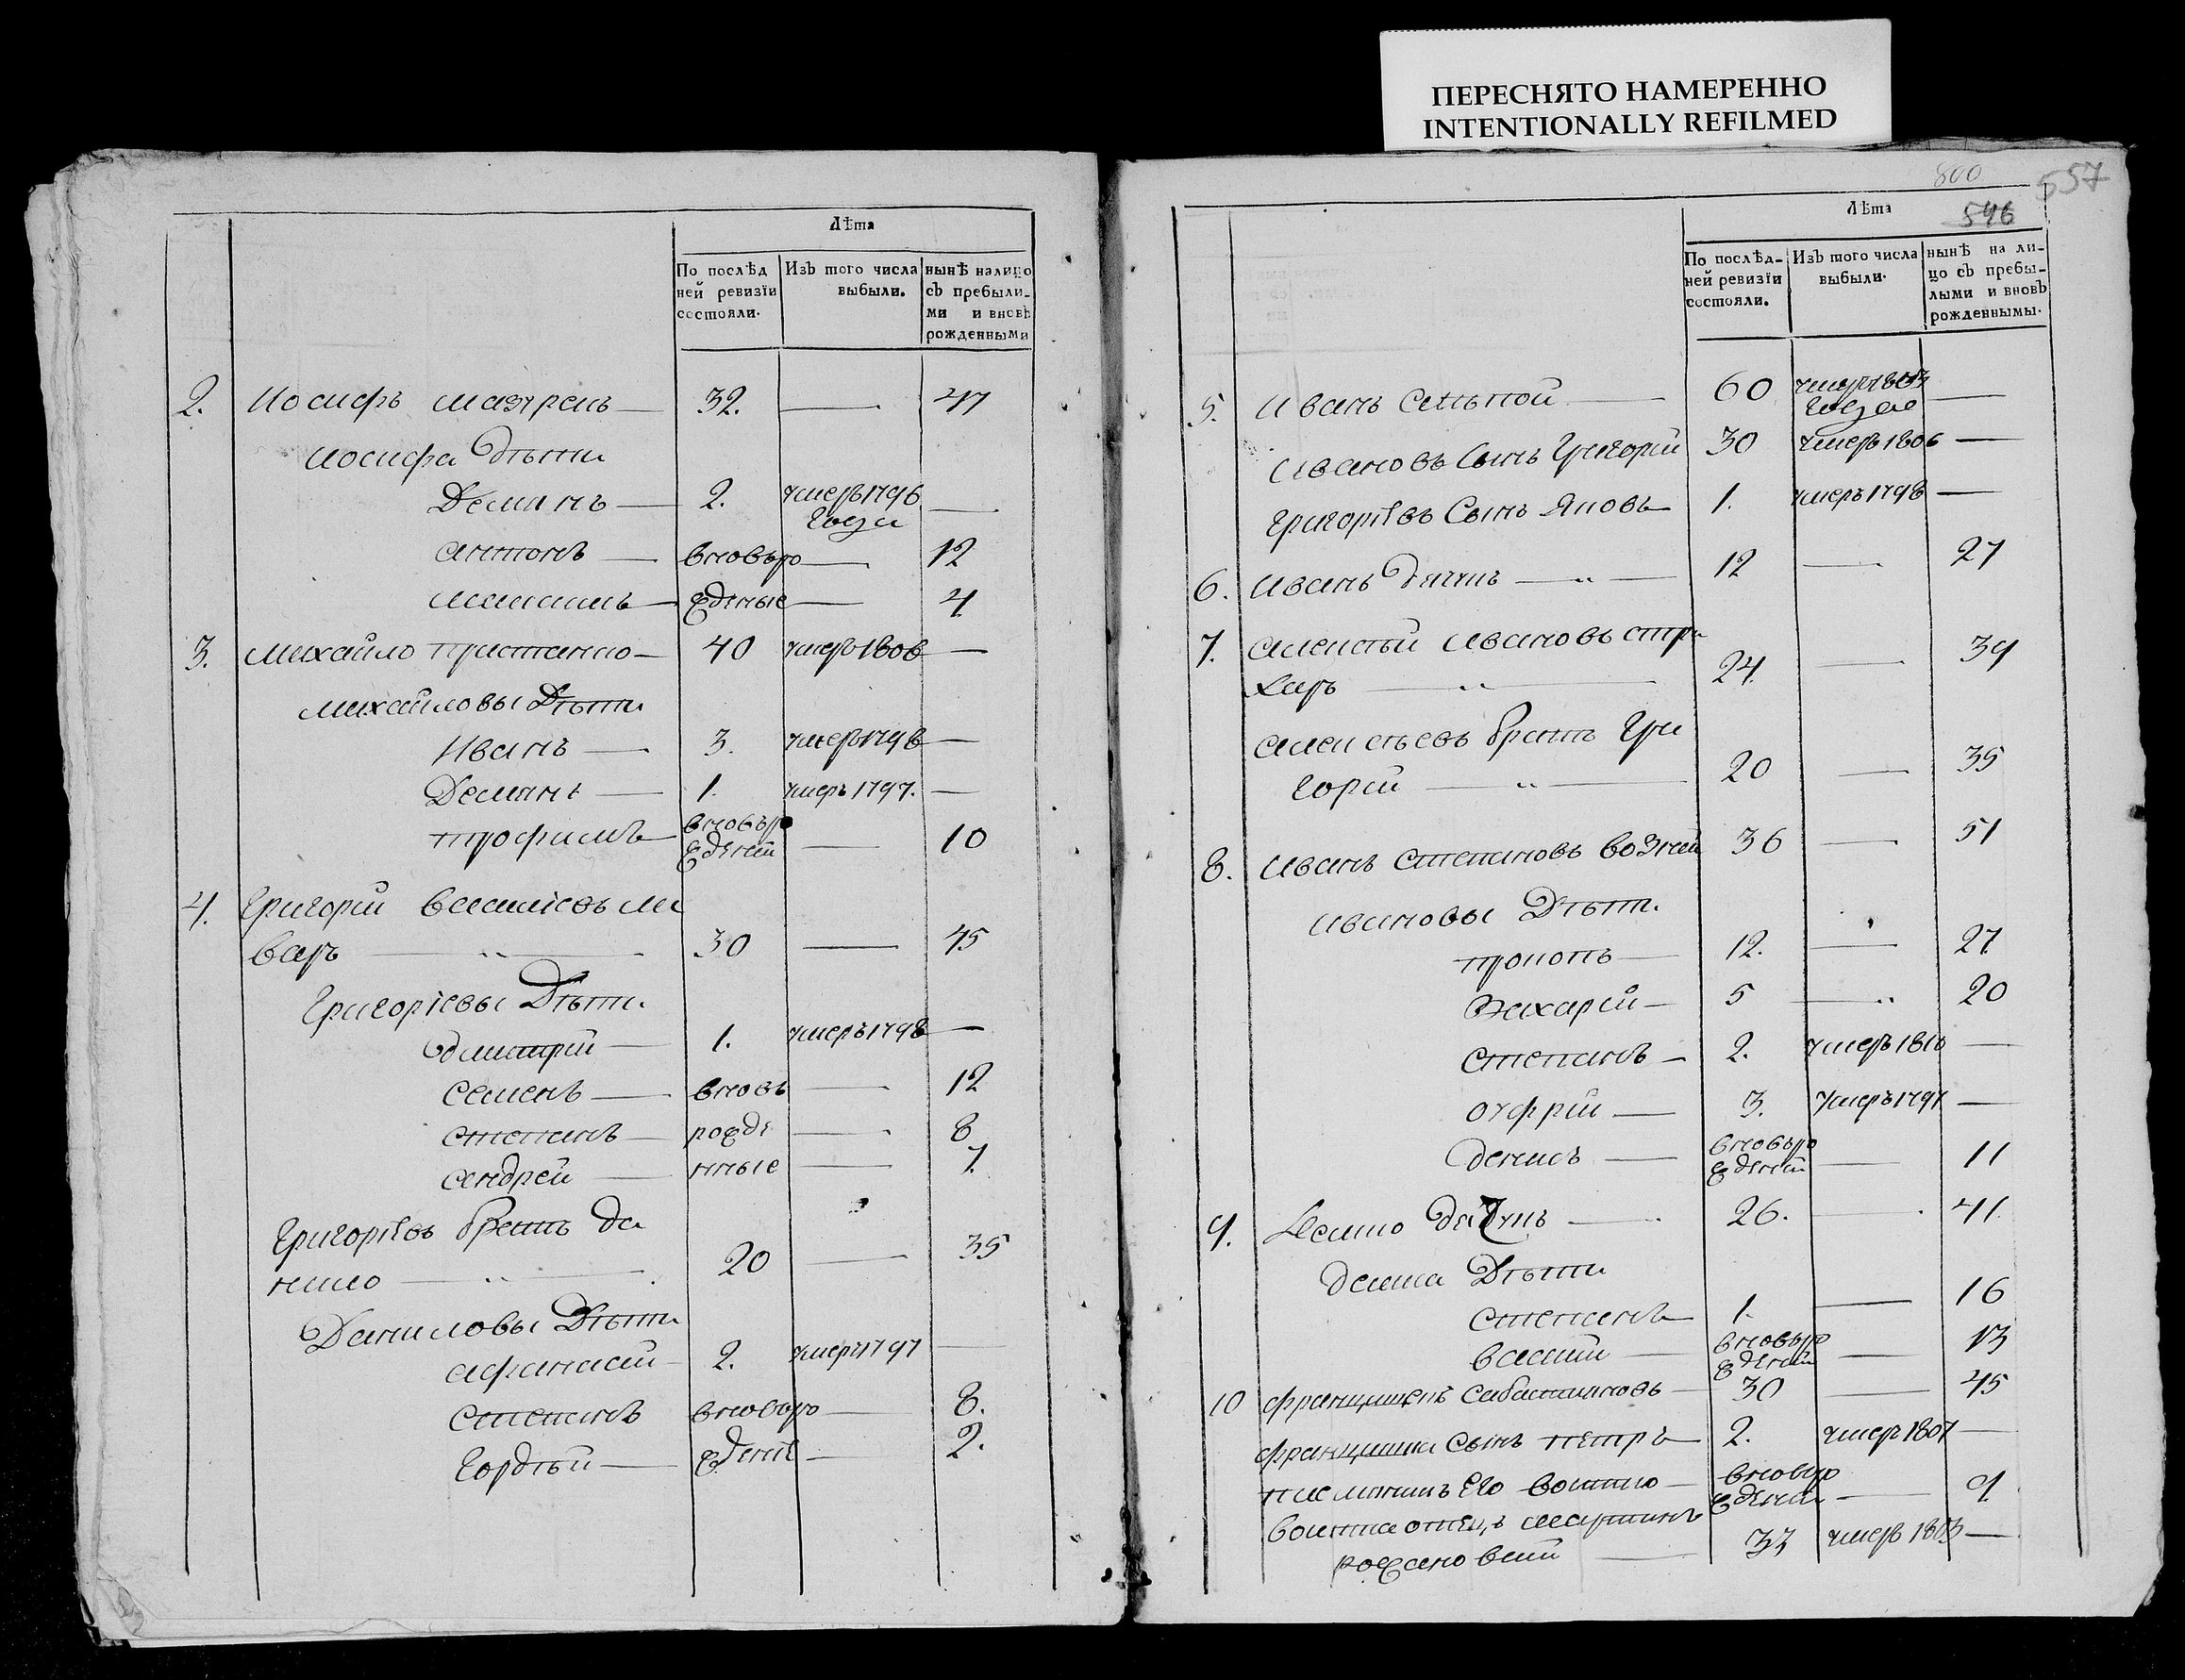 ПЕРЕСНЯТО НАМЕРЕННО
INTENTIONALLY REFILMED
Лѣта
По послѣд
ней ревизіи
состояли.
Изъ того числа
выбыли.
нынѣ налицо
съ пребыли-
ми и вновь
рожденными
2. Иосифъ 32. — 47
Иосифа Дѣти
Демянъ — 2. умеръ 1796 года —
антонъ — вновьро — 12
— жденые — 4
3. Михайло — 40 умеръ 1808 —
Михайловы Дѣти
Иванъ — 3. умеръ 1798 —
Демянъ — 1. умеръ 1797. —
трофимъ — вновьро
жденій — 10
4. Григорій василіевъ ли
варъ — 30 — 45
Григоріевы Дѣти
дмитрій — 1. умеръ 1798 —
семенъ — вновь — 12
степанъ — рожде — 8
андрей — нные — 7.
Григоріевъ братъ да
нило — 20 — 35
Даниловы Дѣти
афанасій — 2. умеръ 1797 —
степанъ вновьро — 8.
Гордѣй — ждені — 2.
800
557
546
Лѣта
По послѣд-
ней ревизіи
состояли.
Изъ того числа
выбыли.
нынѣ на ли-
цо съ пребы-
лыми и вновь
рожденнымы.
5. Иванъ — 60 умеръ 1803
года —
Ивановъ Сынъ Григорій 30 умеръ 1806 —
Григоріевъ Сынъ Яковъ 1. умеръ 1798 —
6. Иванъ — 12 — 27
7. алексѣй ивановъ стри
харъ — 24. — 39
алексѣевъ братъ Гри
горій — 20 — 35
8. Иванъ степановъ возній 36 — 51
Ивановы Дѣти.
прокопъ — 12. — 27
Захарій — 5 — 20
степанъ — 2. умеръ 1810 —
онуфрій — 3. умеръ 1797 —
денисъ — вновьро
жденій — 11
9. — 26. — 41
Дѣти
степанъ 1. — 16
василій — вновьро
жденій — 13
10 францишекъ сабастияновъ — 30 — 45
францишка сынъ петръ — 2. умеръ 1807 —
племяникъ его — вновьро
жденій — 9
отецъ мартинъ
33 умеръ 1803 —